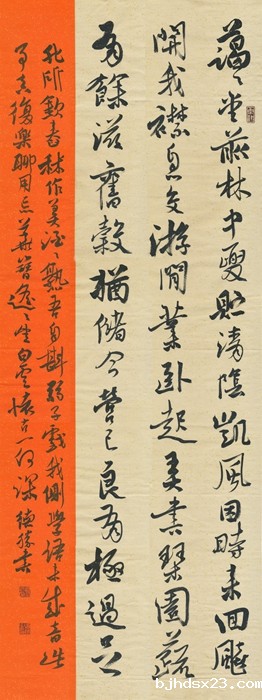 藹〻堂前林中夏貯清陰凱風因時来回飈
開我襟息交游閒業卧起弄書琴園蔬
有餘滋舊穀猶儲今營己良有極過足
非所欽舂秫作美酒〻熟吾自斟弱子戲我側學語未成音此
事真復樂聊用忘華簪遥〻望白雲懷古一何深 德勝書
bjhdsx23.com